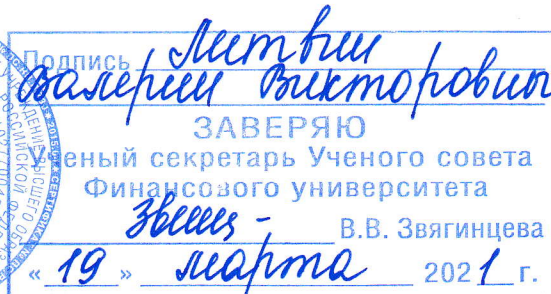 Подпись Литвин
Валерии Викторовны
ЗАВЕРЯЮ
Ученый секретарь Ученого совета
Финансового университета
В.В. Звягинцева
« 19 » марта 2021 г.